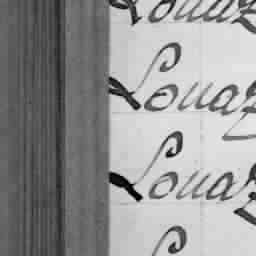 Louaz
Louaz
Louaz
L